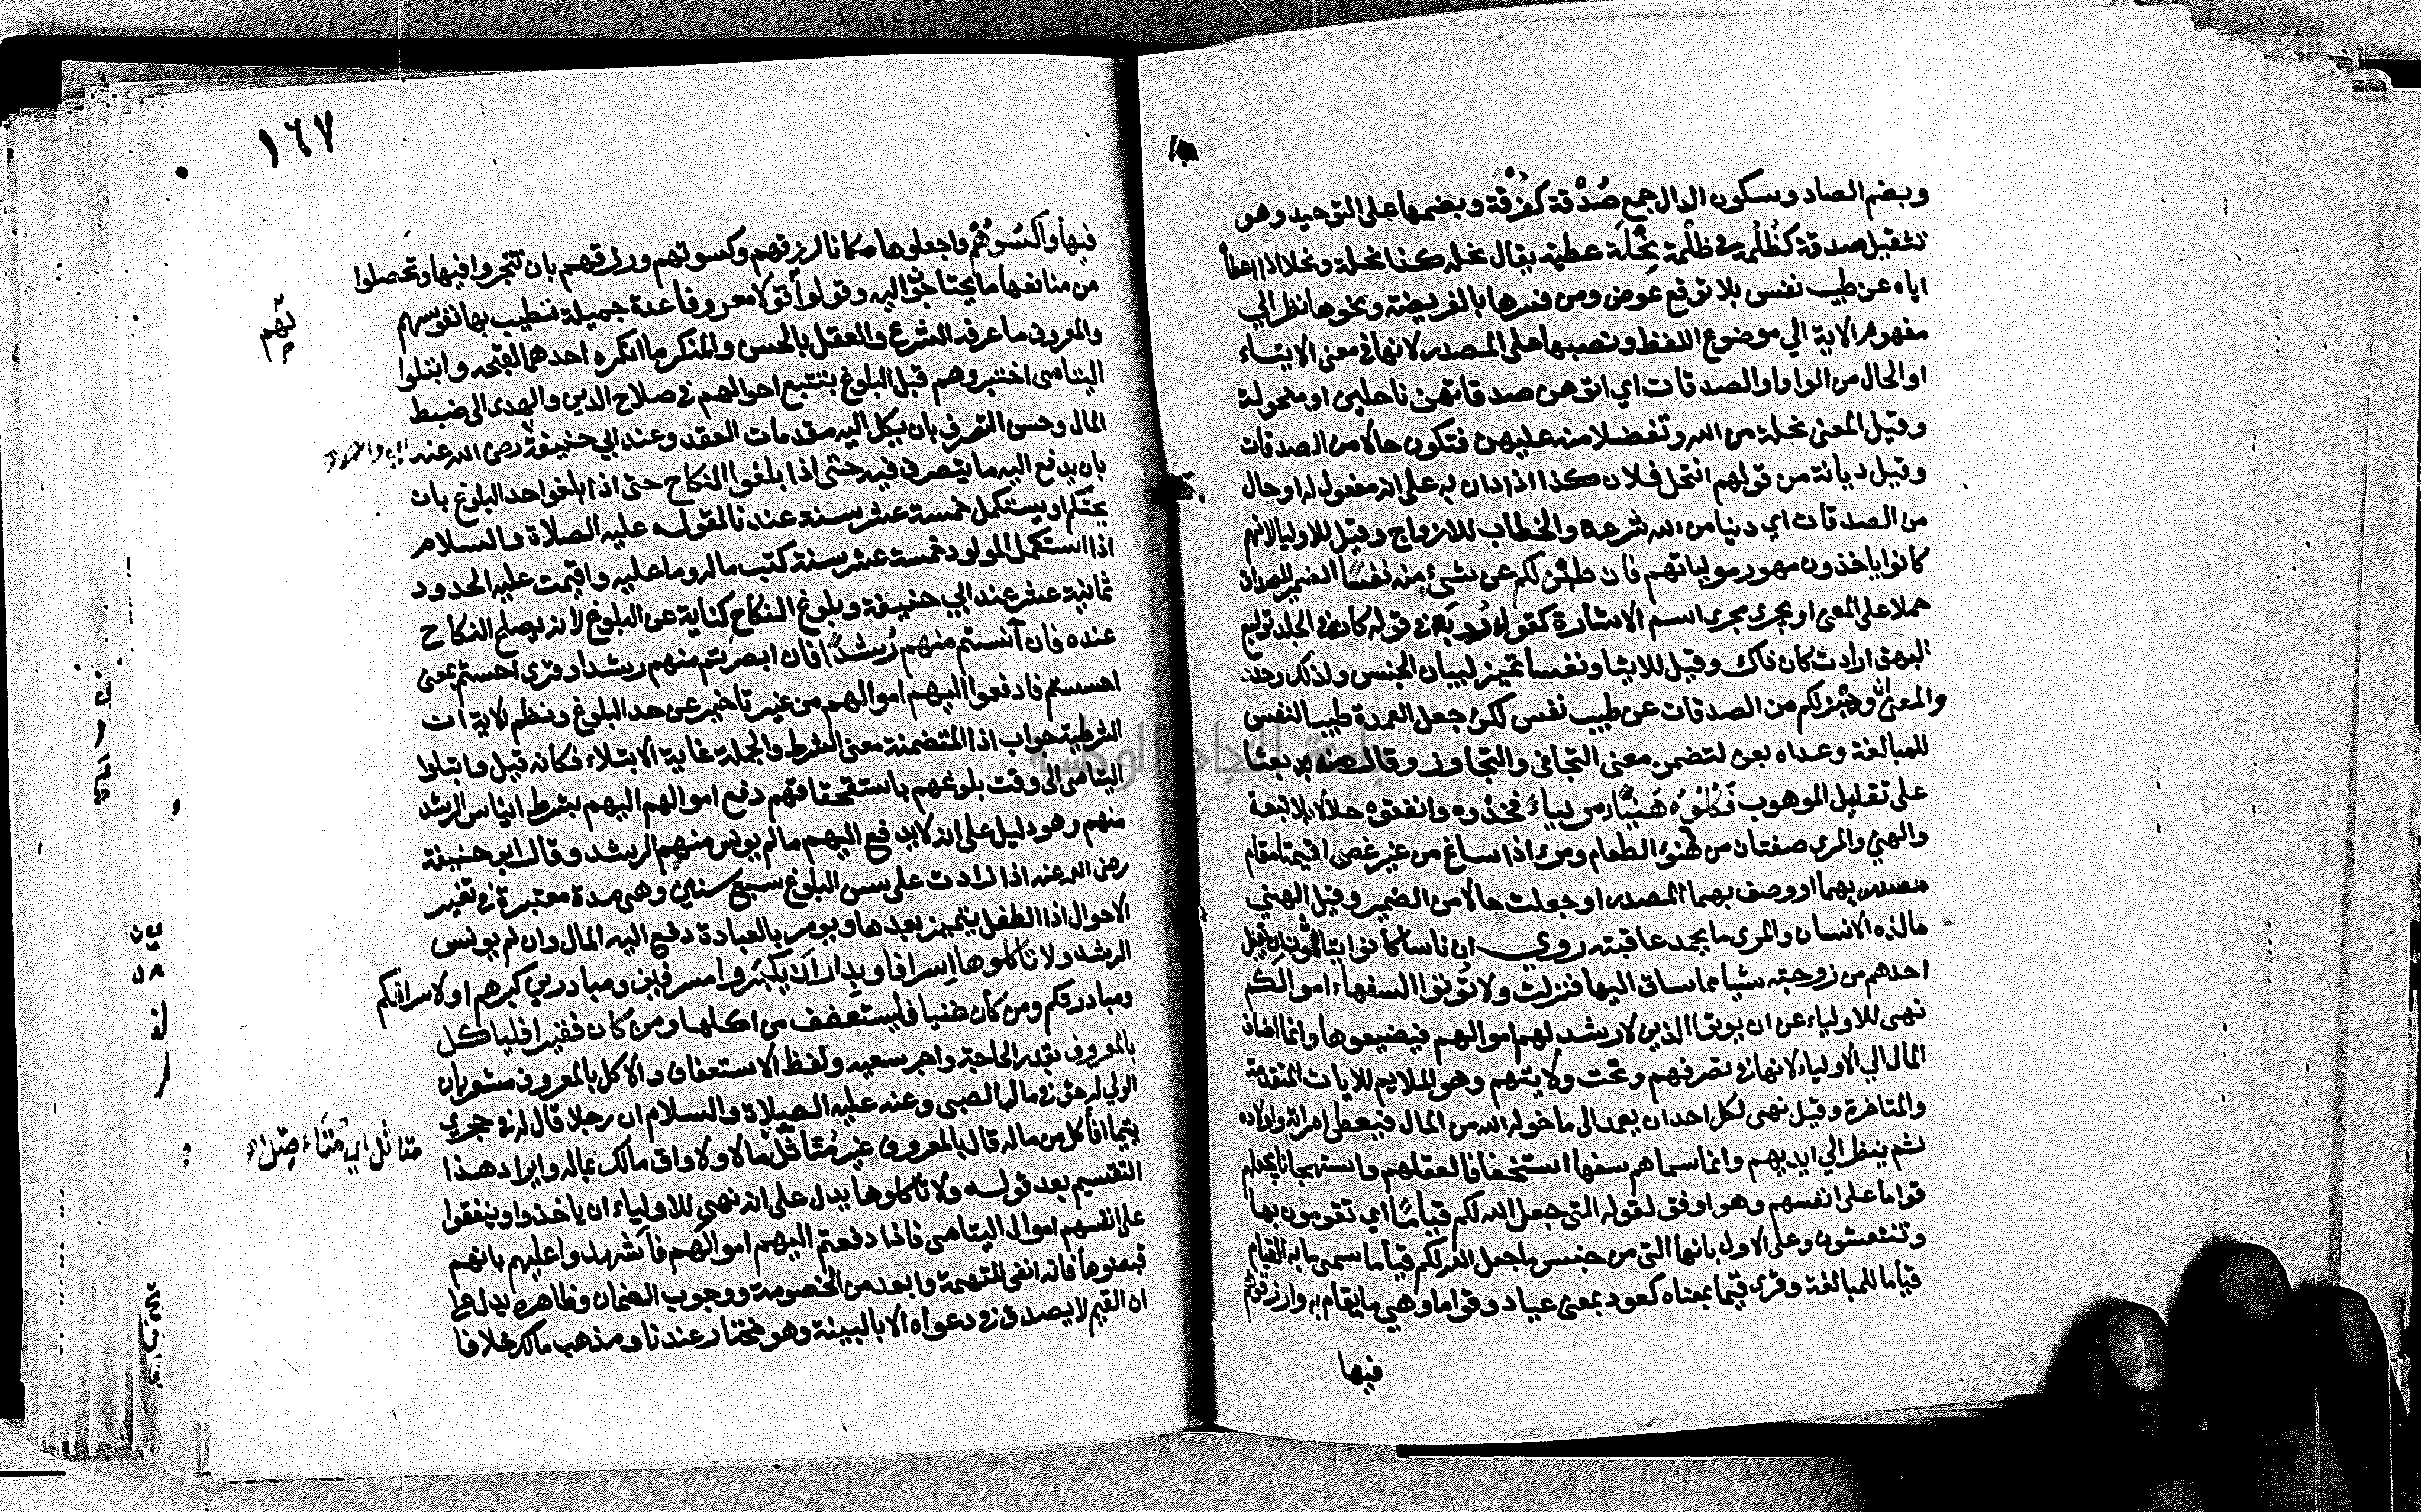 وبضم الصاد وسكون الدال جمع صُدْقة كغُرْفة وبضمها على التوحيد وهو
تثقيل صدقة كظُلُمة في ظلْمة نِحْلَة عطية يقال نحله كذا نحلة ونحلا اذا اعطاه
اياه عن طيب نفس بلا توقع عوض ومن فسرها بالفريضة ونحوها نظر الي
مفهوم الاية الي موضوع اللفظ ونصبها على المصدر لانها في معنى الايتاء
او الحال من الواو او الصدقات اي اتوهن صدقاتهن ناحلين او منحولة
وقيل المعنى نحلة من الله وتفضلا منه عليهن فتكون حالا من الصدقات
وقيل ديانة من قولهم انتحل فلان كذا اذا دان به على انه مفعول له او حال
من الصدقات اي دينا من الله شرعه والخطاب للازواج وقيل للاوليا لانهم
كانوا ياخذون مهور مولياتهم فان طبن لكم عن شيء منه نفسًا الضمير للصداق
حملا على المعنى او يجري مجرى اسم الاشارة كقول رُوبَة في قوله كانه في الجلد توليع
البهق اردت كان ذاك وقيل للايتا ونفسا تميز لبيان الجنس ولذلك وحد
والمعنى ان وهبن لكم من الصدقات عن طيب نفس لكن جعل العمدة طيب النفس
للمبالغة وعداه بعن لتضمن معنى التجافي والتجاوز وقال منه بعثا
على تقليل الموهوب فَكُلُوُه هَنِيًا مريياء فخذوه وانفقوه حلالا بلا تبعة
والهني والمري صفتان من هَنُؤ الطعام ومرؤ اذا ساغ من غير غصص اقيمتا مقام
مصدريهما او وصف بهما المصدر او جعلت حالا من الضمير وقيل الهني
مالذه الانسان والمري ما يحمد عاقبته روي ان ناسا كانوا يتاثمون ان يقبل
احدهم من زوجته شيا مما ساق اليها فنزلت ولا تُوتوا السفهاء اموالكم
نهى للاولياء عن ان يوتوا الذين لا رشد لهم اموالهم فيضيعوها وانما اضاف
المال الي الاولياء لانها في تصرفهم وتحت ولايتهم وهو الملايم للايات المتقدمة
والمتاخرة وقيل نهى لكل احد ان يعمد الى ما خوله الله من المال فيعطى امراته واولاده
ثم ينظر الي ايديهم وانما سماهم سفها استخفافا لعقلهم واستهجانا لجعلهم
قواما على انفسهم وهو اوفق لقوله التي جعل الله لكم قيامًا اي تقومون بها
وتنتعشون وعلى الاول بانها التي من جنس ما جعل الله لكم قياما سمى ما به القيام
قياما للمبالغة وقري قيما بمعناه كعود بمعنى عياد وقواما وهي ما يقام به وارزقوهم
فيها
١٦٧
فيها وَاكْسُوْهُم واجعلوها مكانا لرزقهم وكسوتهم ورزقهم بان تتجروا فيها وتحصلوا
من منافعها ما يحتاجون اليه وقولوا قولا معروفا عدة جميلة تطيب بها نفوسهم
والمعروف ما عرفه الشرع والعقل بالحسن والمنكر ما انكره احدهما لقبحه وابتلوا
اليتامى اختبروهم قبل البلوغ بتتبع احوالهم في صلاح الدين والهدى الى ضبط
المال وحسن التصرف بان يكل اليه مقدمات العقد وعند ابي حنيفة رضى الله عنه
بان يدفع اليه ما يتصرف فيه حتى اذا بلغوا النكاح حتى اذا بلغوا حد البلوغ بان
يحتلم او يستكمل خمسة عشر سنة عندنا لقوله عليه الصلاة والسلام
اذا استكمل المولود خمسة عشر سنة كتب ماله وما عليه واقيمت عليه الحدود
ثمانية عشر عند ابي حنيفة وبلوغ النكاح كناية عن البلوغ لانه يصلح النكاح
عنده فان آنستم منهم رُشدًا فان ابصرتم منهم رشدا وقري احستم بمعنى
احسستم فادفعوا اليهم اموالهم من غير تاخير عن حد البلوغ ونظم الاية ان
الشرطية جواب اذا المتضمنة معنى الشرط والجملة غاية الابتلاء فكانه قيل وابتلوا
اليتامى الى وقت بلوغهم باستحقاقهم دفع اموالهم اليهم بشرط ايناس الرشد
منهم وهو دليل على انه لا يدفع اليهم مالم يونس منهم الرشد وقال ابو حنيفة
رضى الله عنه اذا زادت على سن البلوغ سبع سنين وهى مدة معتبرة في تغير
الاحوال اذا الطفل يتميز بعدها ويومر بالعبادة دفع اليه المال وان لم يونس
الرشد ولا تاكلوها اِسرافا وبِدارا اَنْ يكْبَروا مسرفين ومبادرين كبرهم او لاسرافكم
ومبادرتكم ومن كان غنيا فليستعفف من اكلها ومن كان فقيرا فلياكل
بالمعروف بقدر الحاجة واجر سعيه ولفظ الاستعفاف والاكل بالمعروف مشعر بان
الولي له حق في مال الصبي وعنه عليه الصلاة والسلام ان رجلا قال له في حجري
يتيما افاكل من ماله قال بالمعروف غير مُتَاثِّل مالا ولا واق مالك بماله وايراد هذا
التقسيم بعد قوله ولا تاكلوها يدل على انه نهي للاولياء ان ياخذوا وينفقوا
على انفسهم اموال اليتامى فاذا دفعتم اليهم اموالهم فاشهدوا عليهم بانهم
قبضوها فانه انفى للتهمة وابعد من الخصومة ووجوب الضمان وظاهره يدل على
ان القيم لا يصدق في دعواه الا بالبينة وهو مختار عندنا ومذهب مالك خلافا